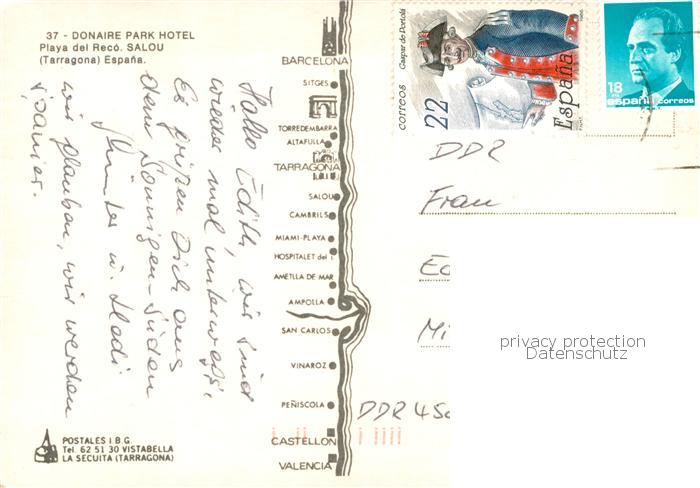 37 - DONAIRE PARK HOTEL
Playa del Recó. SALOU
(Tarragona) España.
Hallo Edith, wir sind
wieder mal unterwegs.
Es grüßen Dich aus
dem Sonnigen-Süden
Günter u. Hedi
wir glauben, wir werden
spanier.
BARCELONA
SITGES
TORREDEMBARRA
ALTAFULLA
TARRAGONA
SALOU
CAMBRILS
MIAMI-PLAYA
HOSPITALET del I.
AMETLLA DE MAR
AMPOLLA
SAN CARLOS
VINAROZ
PEÑISCOLA
CASTELLON
VALENCIA
POSTALES I B.G.
Tel. 62 51 30 VISTABELLA
LA SECUITA (TARRAGONA)
correos
22
Gaspar de Portolá
España
18
españa correos
DDR
Frau
Ed
Mi
DDR 45
privacy protection
Datenschutz